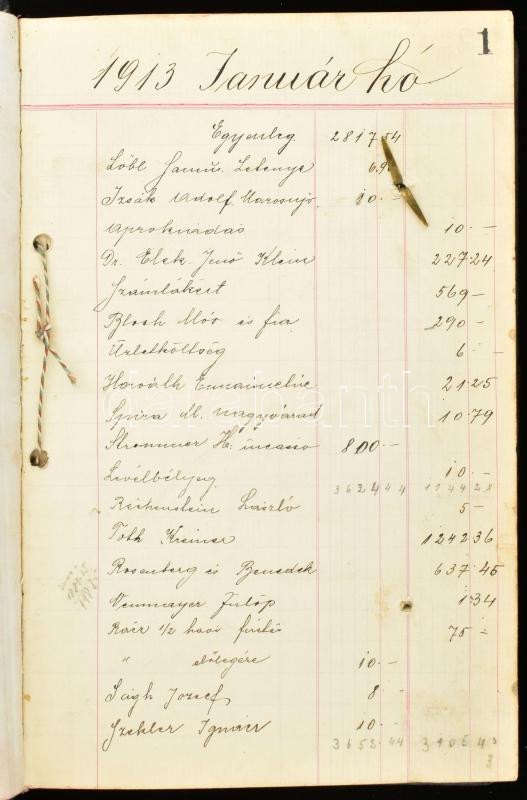 1
1913 Január hó
Egyenleg. 2817 54
Löbl Samu. Letenye 6.90
Izsák Adolf Marosujv. 10.-
Aprokiadás 10.-
Dr. Elek Jenő Klein 227.24
Számlákért 569-
Bloch Mór és fia 290-
Üzletköltség 6 -
Horváth 21.25
Spira dl. Nagyvárad 10.79
Strommer H. incasso 800.-
Levélbélyeg 10.-
3624 44
Reichenstein László 5-
Toth Kreiner 1242 36
Rosenberg és Benedek 637.45
Neumayer Fülöp 1.34
Raér 1/2 havi fizetés 75 -
" előlegére 10.-
Ságh Jozsef 8 -
Szekler Ignácz 10.-
3652.44
darabanth